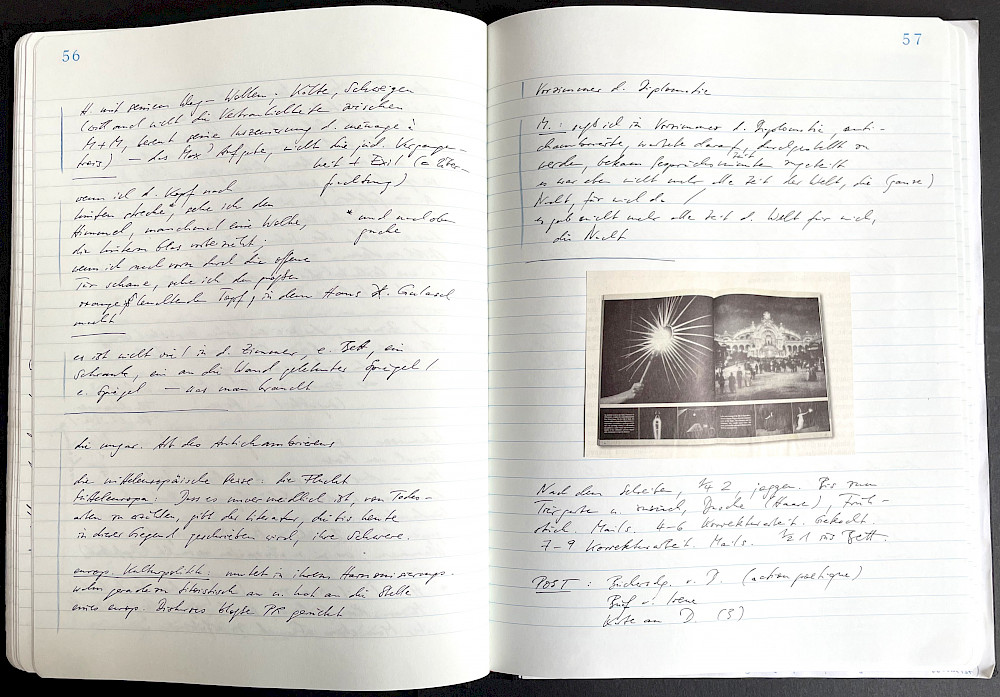 56
H. mit seinem Weg-Wollen; Kälte, Schweigen
(will und will die Vertraulichkeit zwischen
M+M, braucht seine Inszenierung d. ménage à
trois) – das Max' Aufgabe, nicht die jüd. Vergangen-
heit + Exil (= Über-
frachtung)
wenn ich d. Kopf nach
hinten strecke*, sehe ich den
* und nach oben
gucke
Himmel, manchmal eine Wolke,
die hinterm Glas vorbeizieht;
wenn ich nach vorn durch die offene
Tür schaue, sehe ich den großen
orange leuchtenden Topf, in dem Hans H. Gulasch
macht
es ist nicht viel in d. Zimmer, e. Bett, ein
Schrank, ein an die Wand gelehnter Spiegel /
e. Spiegel – was man braucht
die ungar. Art des Antichambrierens
die mitteleuropäische Reise: die Flucht
Mitteleuropa: Dass es unvermeidlich ist, von Todes-
arten zu erzählen, gibt der Literatur, die bis heute
in dieser Gegend geschrieben wird, ihre Schwere.
europ. Kulturpolitik: mutet in ihrem Harmonisierungs-
wahn geradezu stalinistisch an u. hat an die Stelle
eines europ. Diskurses bloße PR gerückt
57
Vorzimmer d. Diplomatie
M.: saß ich im Vorzimmer d. Diplomatie, anti-
chambrierte, wartete darauf, durchgestellt zu
werden, bekam Gesprächsminuten zugeteilt
es war eben nicht mehr alle Zeit der Welt, die (ganze)
Nacht, für mich da /
es gab nicht mehr alle Zeit d. Welt für mich,
die Nacht
Nach dem Schreiben, 1/4 2 joggen. Bis zum
Tiergarten u. zurück, Dusche (Haare), Früh-
stück. Mails. 4–6 Korrekturarbeit. Gekocht.
7–9 Korrekturarbeit. Mails. 1/2 1 ins Bett.
POST: Büchersdg. v. D. (action poétique)
Brief v. Irene
Karte an D. (3)